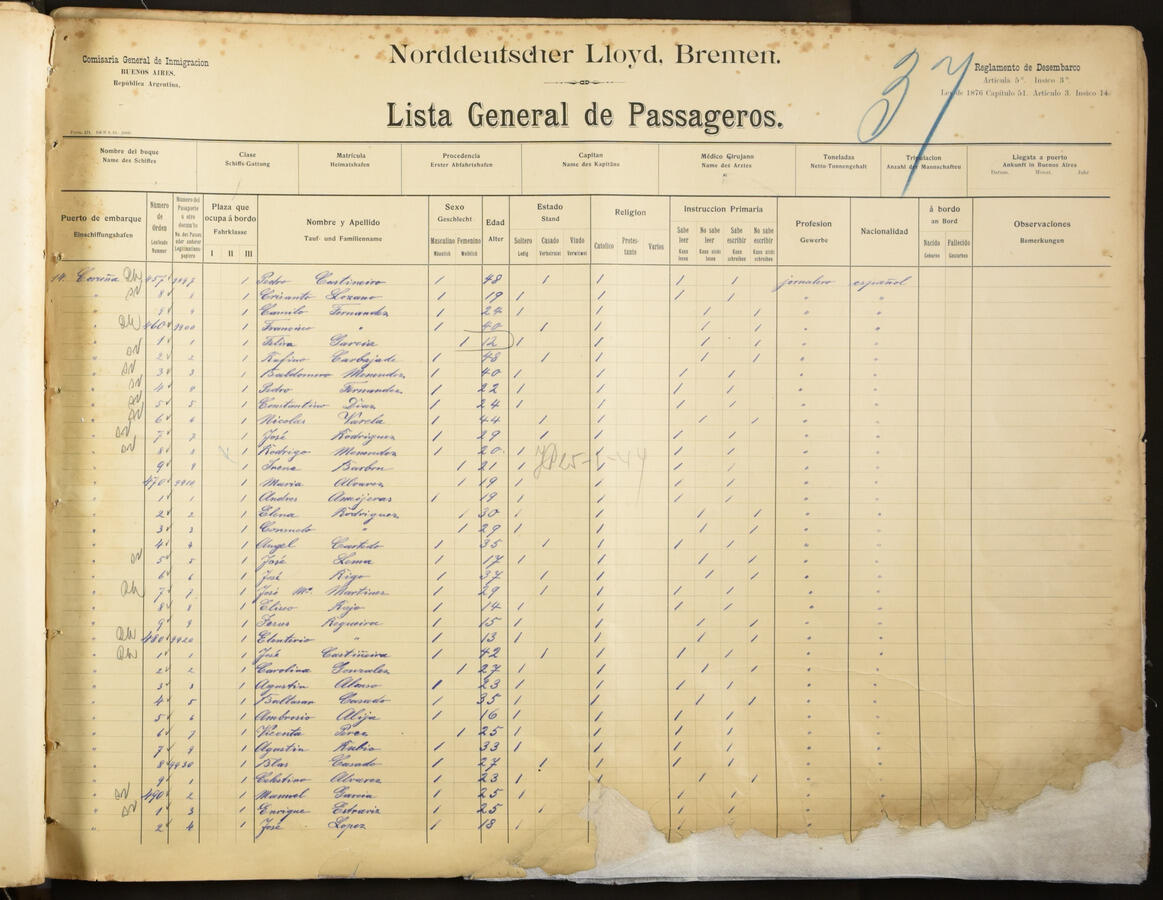 Comisaria General de Inmigracion
BUENOS AIRES.
Republica Argentina.
Norddeutscher Lloyd, Bremen.
Lista General de Passageros.
37
Reglamento de Desembarco
Articula 5º. Insico 3º.
Ley de 1876 Capitulo 51. Articulo 3. Insico 14.
Nombre del buque
Name des Schiffes
Clase
Schiffs-Gattung
Matrícula
Heimatshafen
Procedencia
Erster Abfahrtshafen
Capitan
Name des Kapitäns
Médico Girujano
Name des Arztes
Toneladas
Netto-Tonnengehalt
Tripulacion
Anzahl der Mannschaften
Llegata a puerto
Ankunft in Buenos Aires
Datum. Monat. Jahr
Puerto de embarque
Einschiffungshafen
Número de Orden
Laufende Nummer
Plaza que ocupa á bordo
Fahrklasse
I II III
Nombre y Apellido
Tauf- und Familienname
Sexo
Geschlecht
Masculino Femenino
Männlich Weiblich
Edad
Alter
Estado
Stand
Soltero Casado Viudo
Ledig Verheiratet Verwitwet
Religion
Catolico Protestante Varios
Instruccion Primaria
Sabe leer No sabe leer Sabe escribir No sabe escribir
Kann lesen Kann nicht lesen Kann schreiben Kann nicht schreiben
Profesion
Gewerbe
Nacionalidad
á bordo
an Bord
Nacido Fallecido
Geboren Gestorben
Observaciones
Bemerkungen
14. Coruña 457 9897 1 Pedro Castineiro 1 48 1 1 1 1 jornalero español
" 8 8 1 Crisanto Lozano 1 19 1 1 1 1 " "
" 9 9 1 Camilo Fernandez 1 24 1 1 1 1 " "
" 460 9900 1 Francisco " 1 40 1 1 1 1 " "
" 1 1 1 Garcia 1 12 1 1 1 1 " "
" 2 2 1 Rufino Carbajade 1 48 1 1 1 1 " "
" 3 3 1 Baldomero Menendez 1 40 1 1 1 1 " "
" 4 4 1 Pedro Fernandez 1 22 1 1 1 1 " "
" 5 5 1 Constantino Diaz 1 24 1 1 1 1 " "
" 6 6 1 Nicolas Varela 1 44 1 1 1 1 " "
" 7 7 1 José Rodriguez 1 29 1 1 1 1 " "
" 8 8 1 Rodrigo Menendez 1 20 1 1 1 1 " "
" 9 9 1 Irena Barbon 1 21 1 1 1 1 " "
" 470 9910 1 Maria Alvarez 1 19 1 1 1 1 " "
" 1 1 1 Andres Ameijeras 1 19 1 1 1 1 " "
" 2 2 1 Elena Rodriguez 1 30 1 1 1 1 " "
" 3 3 1 Consuelo " 1 29 1 1 1 1 " "
" 4 4 1 Angel Castedo 1 35 1 1 1 1 " "
" 5 5 1 José Lema 1 17 1 1 1 1 " "
" 6 6 1 José Rigo 1 37 1 1 1 1 " "
" 7 7 1 José Mª Martinez 1 29 1 1 1 1 " "
" 8 8 1 Eliseo Rajo 1 14 1 1 1 1 " "
" 9 9 1 Jesus Regueira 1 15 1 1 1 1 " "
" 480 9920 1 Elenterio " 1 13 1 1 1 1 " "
" 1 1 1 José Castiñeira 1 42 1 1 1 1 " "
" 2 2 1 Carolina Gonzalez 1 27 1 1 1 1 " "
" 3 3 1 Agustin Alonso 1 23 1 1 1 1 " "
" 4 5 1 Baltasar Casado 1 35 1 1 1 1 " "
" 5 6 1 Ambrosio Alija 1 16 1 1 1 1 " "
" 6 7 1 Vicenta Perez 1 25 1 1 1 1 " "
" 7 9 1 Agustin Rubio 1 33 1 1 1 1 " "
" 8 9930 1 Blas Casado 1 27 1 1 1 1 " "
" 9 1 1 Celestino Alvarez 1 23 1 1 1 1 "
" 490 2 1 Manuel Garcia 1 25 1 1 1
" 1 3 1 Enrique Estraviz 1 25 1 1 1
" 2 4 1 José Lopez 1 18 1 1 1